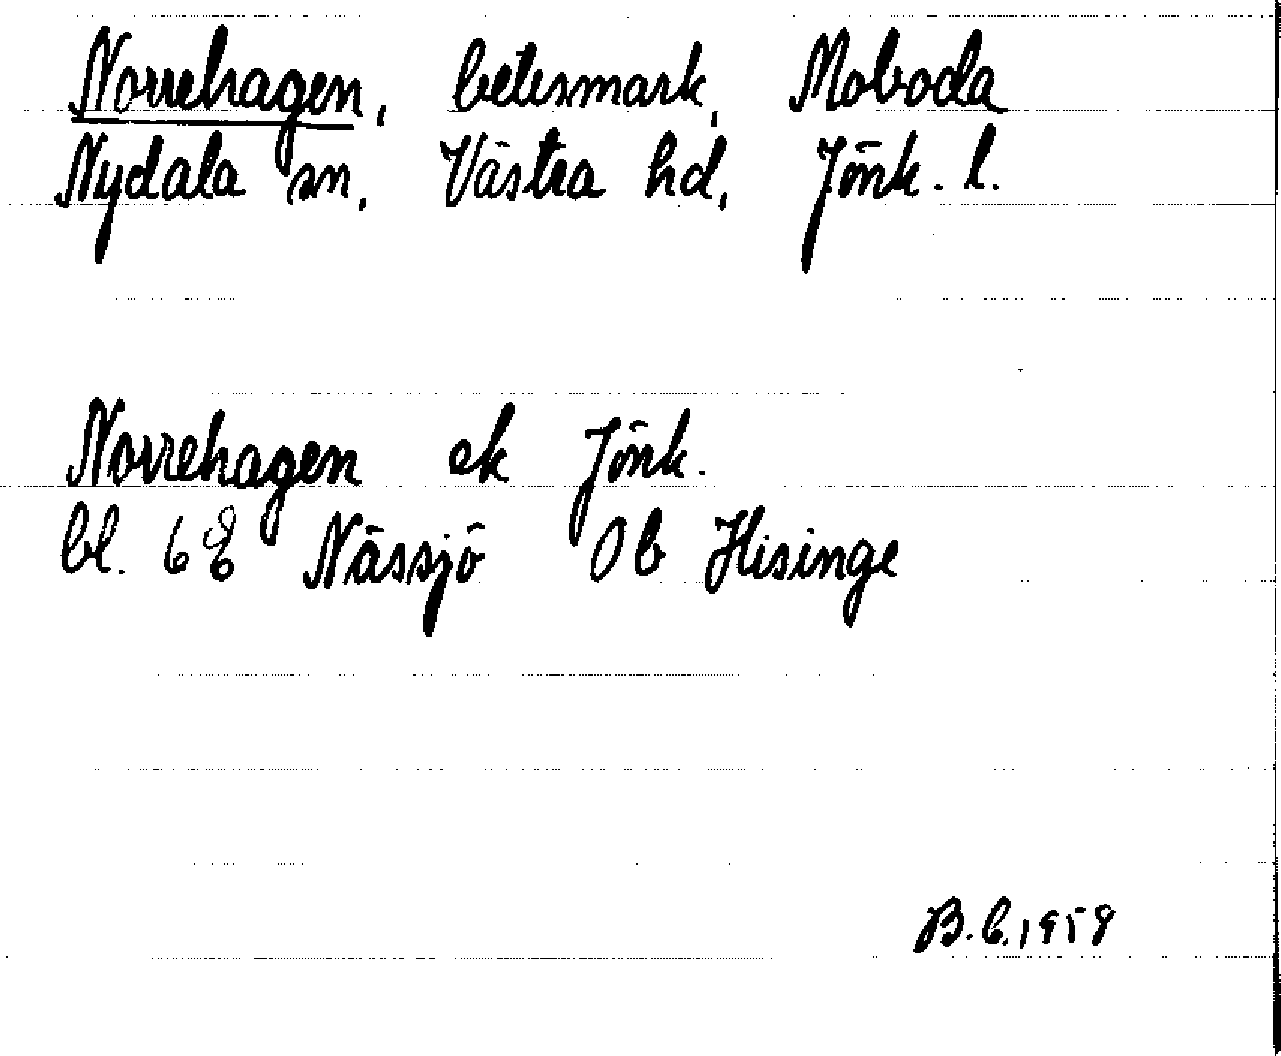 Norrehagen, betesmark, Moboda
Nydala sn, Västra hd, Jönk. l.
Norrehagen ek Jönk.
bl. 6E Nässjö Ob Hisinge
B.E. 1959